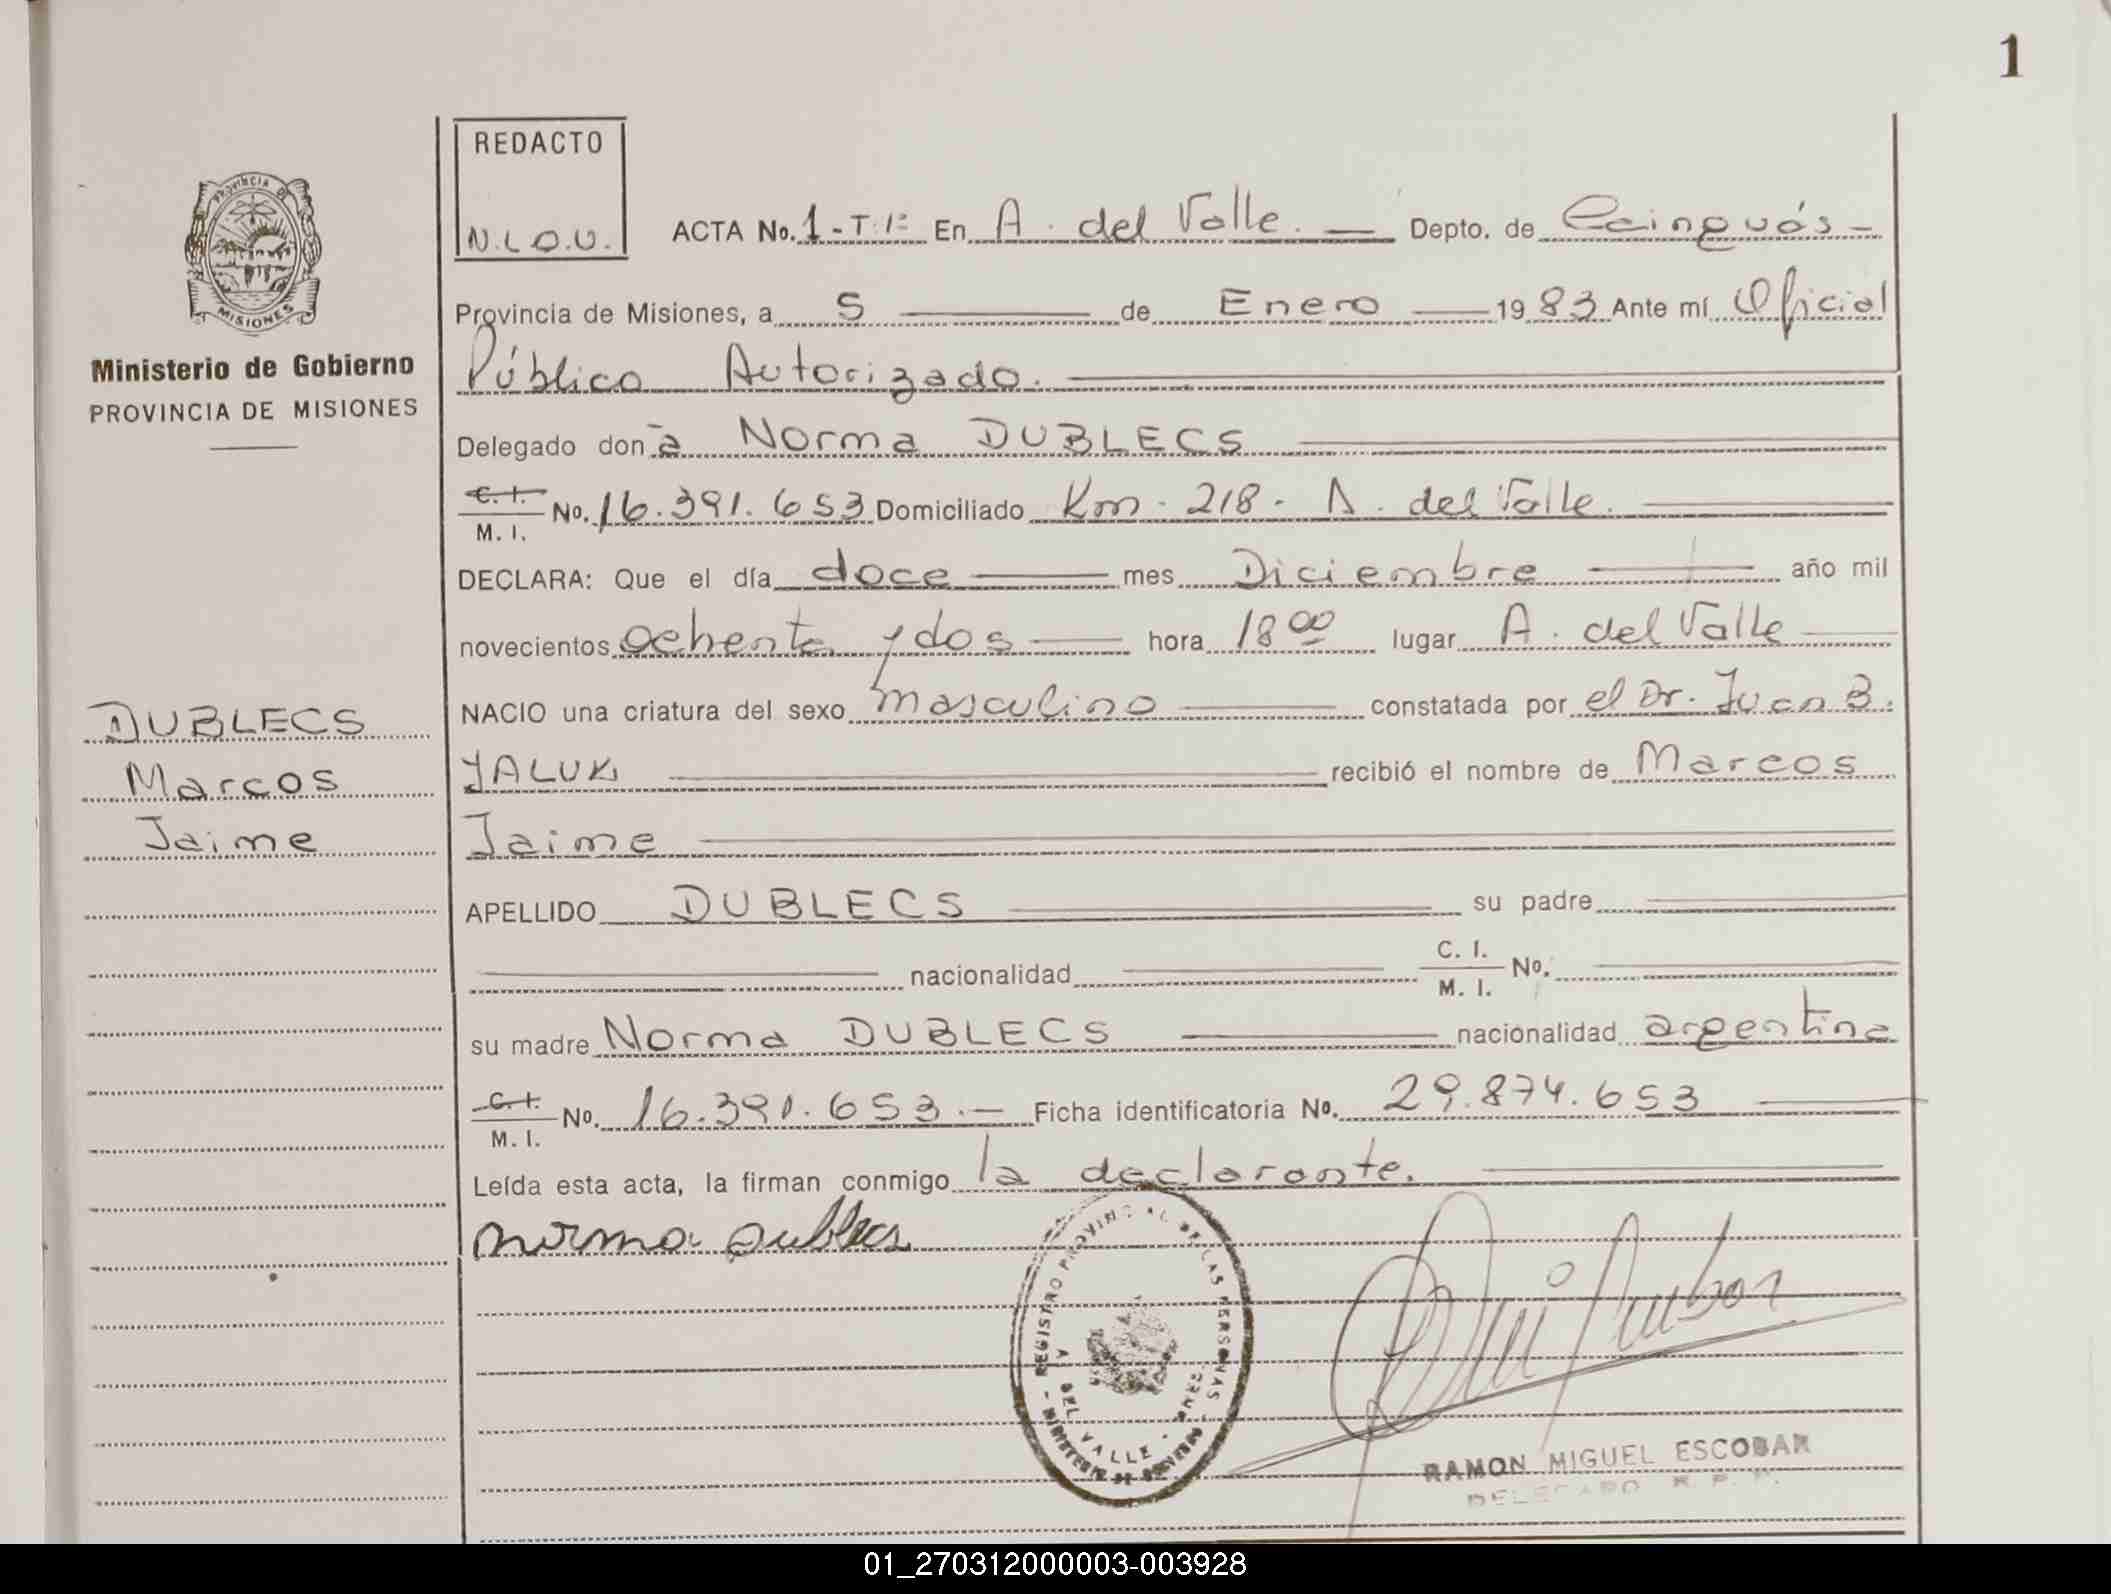 1
REDACTO
N.L.O.U.
PROVINCIA DE
MISIONES
Ministerio de Gobierno
PROVINCIA DE MISIONES
DUBLECS
Marcos
Jaime
ACTA No. 1 - T. 1º En A. del Valle. — Depto. de Cainguás -
Provincia de Misiones, a 5 — de Enero — 1983 Ante mí Oficial
Público Autorizado. —
Delegado don a Norma DUBLECS —
C. I.
M. I. No. 16.391.653 Domiciliado Km - 218 - A. del Valle. —
DECLARA: Que el día doce — mes Diciembre — año mil
novecientos ochenta y dos — hora 18 00 lugar A. del Valle —
NACIO una criatura del sexo masculino — constatada por el Dr. Juan B.
YALUK — recibió el nombre de Marcos
Jaime —
APELLIDO DUBLECS — su padre —
— nacionalidad — C. I.
M. I. No. —
su madre Norma DUBLECS — nacionalidad argentina
C. I.
M. I. No. 16.391.653. — Ficha identificatoria No. 29.874.653 —
Leída esta acta, la firman conmigo la declarante. —
norma dublecs
REGISTRO PROVINCIAL DE LAS PERSONAS
MINISTERIO DE GOBIERNO
A. DEL VALLE
RAMON MIGUEL ESCOBAR
DELEGADO R. P. P.
01_270312000003-003928